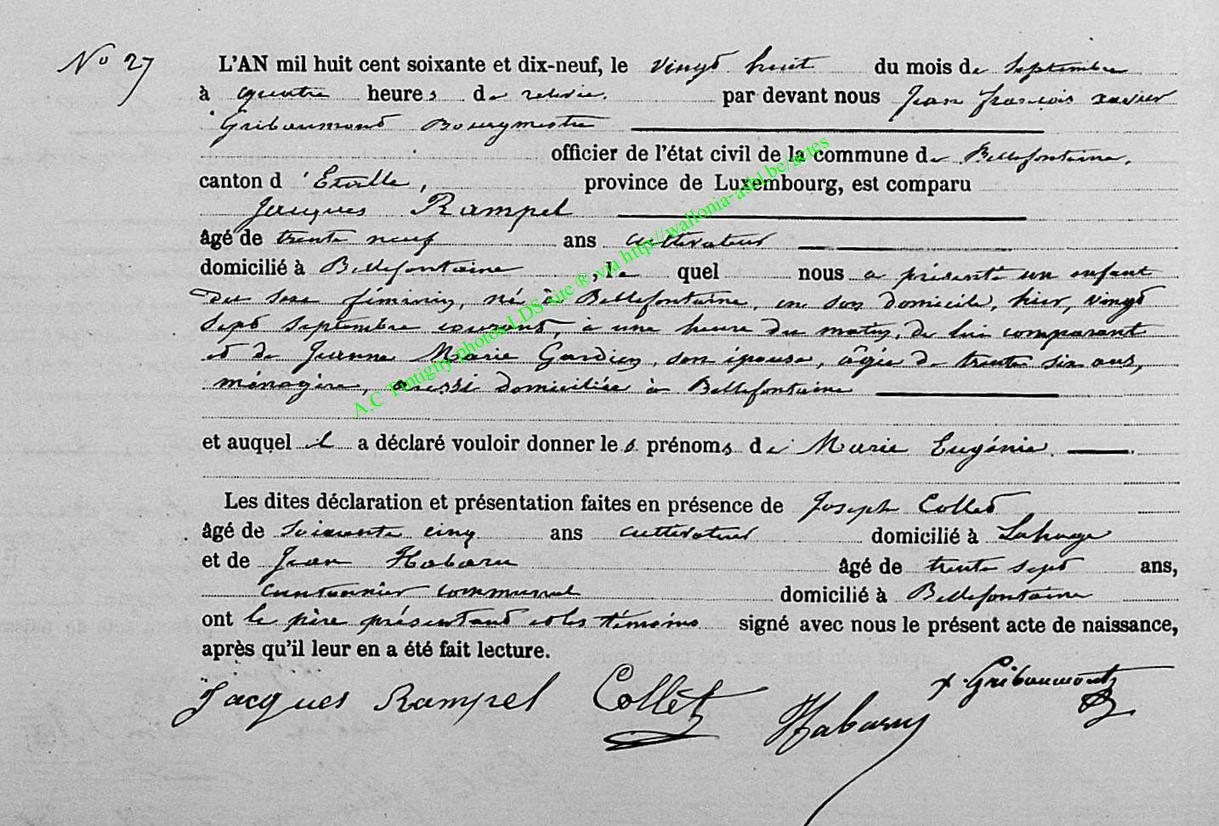 No 27
L'AN mil huit cent soixante et dix-neuf, le vingt huit du mois de Septembre
à quatre heures de relevée. par devant nous Jean françois xavier
Gribaumont Bourgmestre
officier de l'état civil de la commune de Bellefontaine,
canton d'Etalle, province de Luxembourg, est comparu
Jacques Rampel
âgé de trente neuf ans cultivateur
domicilié à Bellefontaine, le quel nous a présenté un enfant
du sexe féminin, né à Bellefontaine, en son domicile, hier, vingt
sept septembre courant, à une heure du matin, de lui comparant
et de Jeanne Marie Gardien, son épouse, âgée de trente six ans,
ménagère, aussi domiciliée à Bellefontaine
et auquel il a déclaré vouloir donner les prénoms de Marie Eugénie.
Les dites déclaration et présentation faites en présence de Joseph Collet
âgé de soixante cinq ans cultivateur domicilié à Lahage
et de Jean Habaru âgé de trente sept ans,
cantonnier communal domicilié à Bellefontaine
ont le père présentant et les témoins signé avec nous le présent acte de naissance,
après qu'il leur en a été fait lecture.
Jacques Rampel Collet Habaru x. Gribaumont
A.C Tintigny-photos LDS-site ® via http://wallonia-asbl.be/actes